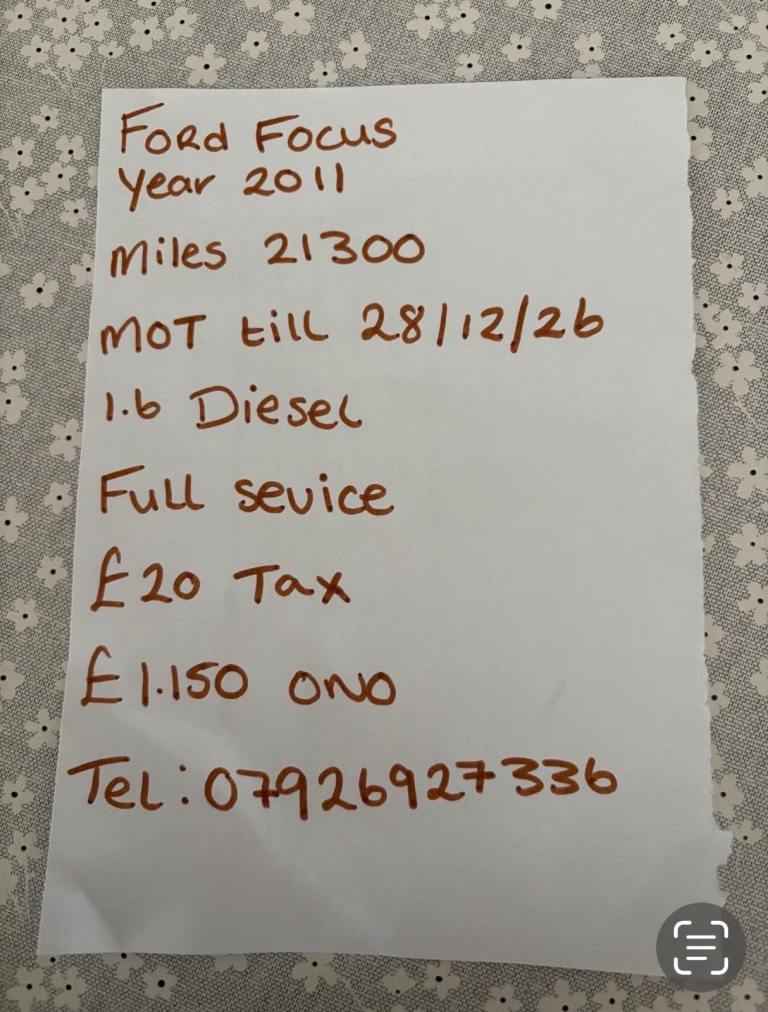 Ford Focus
Year 2011
Miles 21300
MOT till 28/12/26
1.6 Diesel
Full sevice
£20 Tax
£1.150 ONO
Tel: 07926927336